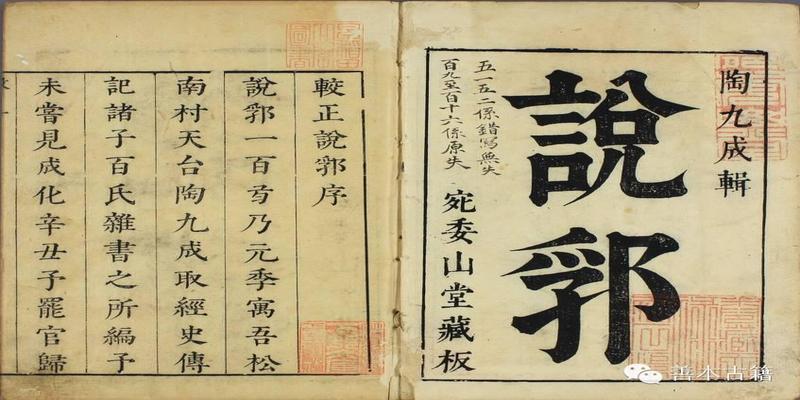 陶九成輯
說郛
五一五二係錯寫無失
百九至百十六係原失
宛委山堂藏板
較正說郛序
說郛一百号乃元季寓吾松
南村天台陶九成取經史傳
記諸子百氏雜書之所編予
未嘗見成化辛丑予罷官歸
善本古籍